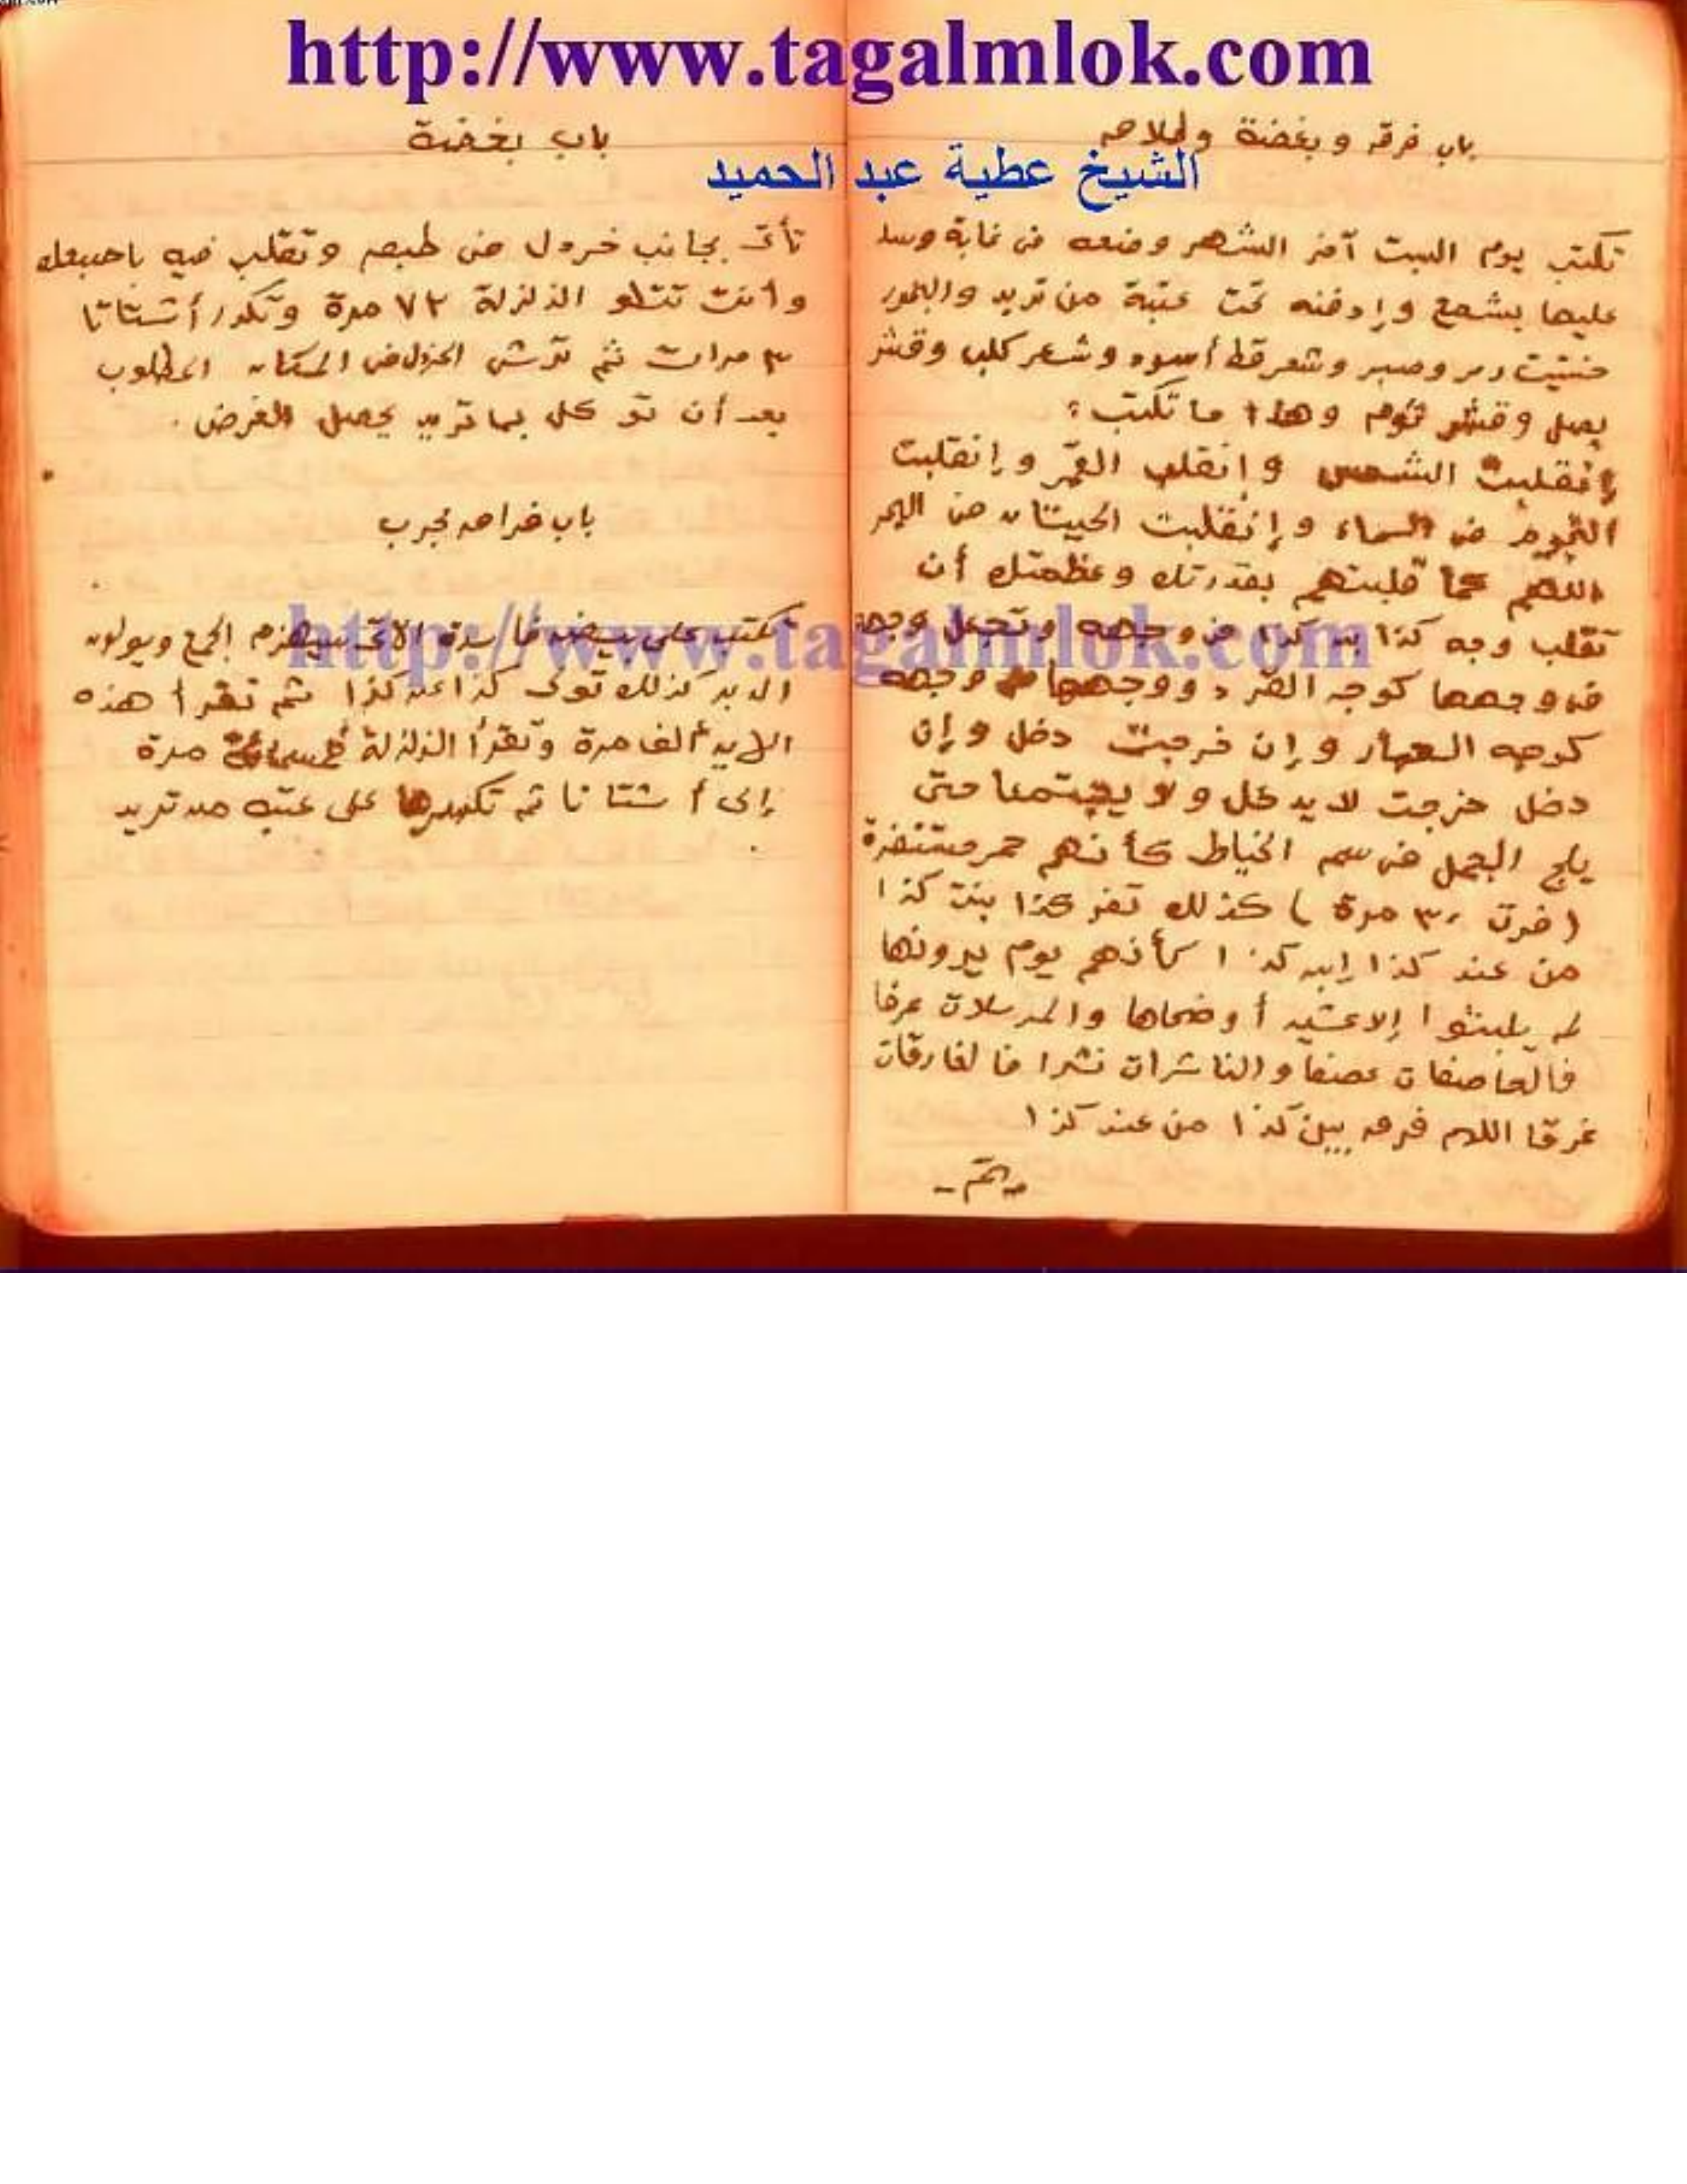 http://www.tagalmlok.com
الشيخ عطية عبد الحميد
باب فرقه وبغضة وطلاق
تكتب يوم السبت آخر الشهر وضعه فى غابة وسد
عليها بشمع وإدفنه تحت عتبة من تريد والبخور
حنتيت ومر وصبر وشعر قط أسود وشعر كلب وقشر
بصل وقشر ثوم وهذا ما تكتب :
إنقلبت الشمس وإنقلب القمر وإنقلبت
النجوم فى السماء وإنقلبت الحيتان فى البحر
اللهم كما قلبتهم بقدرتك وعظمتك أن
تقلب وجه كذا بن كذا فى وجهه وتجعل وجهه
فى وجهها كوجه القرد ووجهها فى وجهه
كوجه الحمار وإن خرجت دخل وإن
دخل خرجت لا يدخل ولا يجتمعا حتى
يلج الجمل فى سم الخياط كأنهم حمر مستنفرة
( فرت ٣٠ مرة ) كذلك تفر كذا بنت كذا
من عند كذا إبن كذا كأنهم يوم يرونها
لم يلبثوا إلا عشيه أو ضحاها والمرسلات عرفا
فالعاصفات عصفا والناشرات نشرا فالفارقات
غرقا اللهم فرق بين كذا من عند كذا
- تم -
باب بغضة
تأتى بجانب خردل فى طبق وتقلب فيه باصبعك
وأنت تتلو الزلزلة ٧٢ مرة وتكرر أشتاتا
٣ مرات ثم ترش الخردل فى المكان المطلوب
بعد أن توكل بما تريد يحصل الغرض .
باب فراق مجرب
تكتب على بيضه فاسدة الآتى سيهزم الجمع ويولون
الدبر كذلك تولى كذا عن كذا ثم تقرأ هذه
الايه ألف مرة وتقرأ الزلزلة مرة
إلى أشتاتا ثم تكسرها على عتبه من تريد
http://www.tagalmlok.com